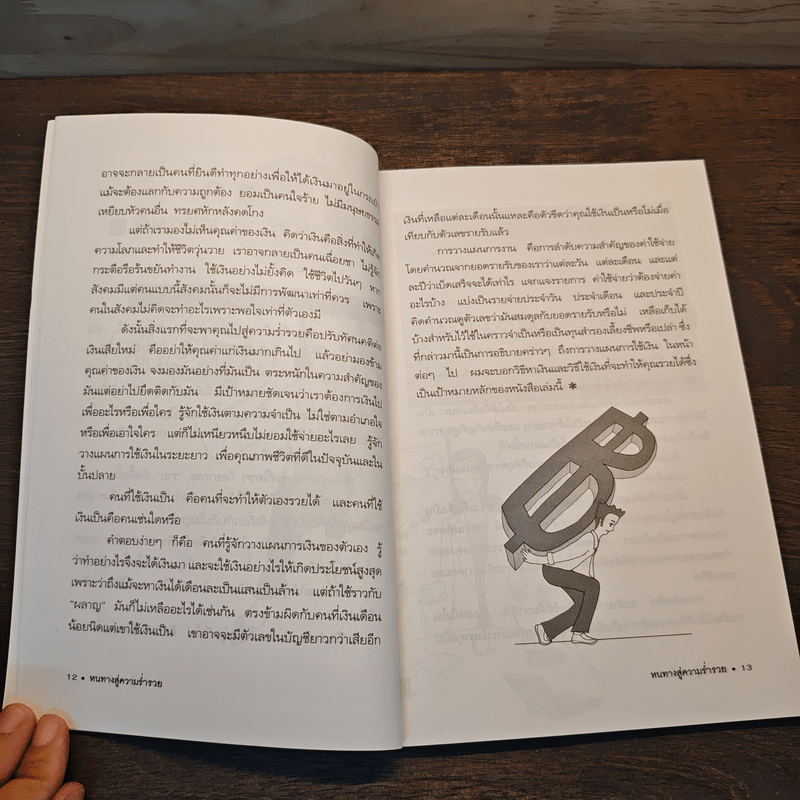 อาจจะกลายเป็นคนที่ยินดีทำทุกอย่างเพื่อให้ได้เงินมาอยู่ในกระเป๋า
แม้จะต้องแลกกับความถูกต้อง ยอมเป็นคนใจร้าย ไม่มีมนุษยธรรม
เหยียบหัวคนอื่น ทรยศหักหลังคดโกง
แต่ถ้าเรามองไม่เห็นคุณค่าของเงิน คิดว่าเงินคือสิ่งที่ทำให้เกิด
ความโลภและทำให้ชีวิตวุ่นวาย เราอาจกลายเป็นคนเฉื่อยชา ไม่รู้จัก
กระตือรือร้นขยันทำงาน ใช้เงินอย่างไม่ยั้งคิด ใช้ชีวิตไปวันๆ หาก
สังคมมีแต่คนแบบนี้สังคมนั้นก็จะไม่มีการพัฒนาเท่าที่ควร เพราะ
คนในสังคมไม่คิดจะทำอะไรเพราะพอใจเท่าที่ตัวเองมี
ดังนั้นสิ่งแรกที่จะพาคุณไปสู่ความร่ำรวยคือปรับทัศนคติต่อ
เงินเสียใหม่ คืออย่าให้คุณค่าแก่เงินมากเกินไป แล้วอย่ามองข้าม
คุณค่าของเงิน จงมองมันอย่างที่มันเป็น ตระหนักในความสำคัญของ
มันแต่อย่าไปยึดติดกับมัน มีเป้าหมายชัดเจนว่าเราต้องการเงินไป
เพื่ออะไรหรือเพื่อใคร รู้จักใช้เงินตามความจำเป็น ไม่ใช่ตามอำเภอใจ
หรือเพื่อเอาใจใคร แต่ก็ไม่เหนียวหนึบไม่ยอมใช้จ่ายอะไรเลย รู้จัก
วางแผนการใช้เงินในระยะยาว เพื่อคุณภาพชีวิตที่ดีในปัจจุบันและใน
บั้นปลาย
คนที่ใช้เงินเป็น คือคนที่จะทำให้ตัวเองรวยได้ และคนที่ใช้
เงินเป็นคือคนเช่นใดหรือ
คำตอบง่ายๆ ก็คือ คนที่รู้จักวางแผนการเงินของตัวเอง รู้
ว่าทำอย่างไรจึงจะได้เงินมา และจะใช้เงินอย่างไรให้เกิดประโยชน์สูงสุด
เพราะว่าถึงแม้จะหาเงินได้เดือนละเป็นแสนเป็นล้าน แต่ถ้าใช้ราวกับ
"ผลาญ" มันก็ไม่เหลืออะไรได้เช่นกัน ตรงข้ามผิดกับคนที่เงินเดือน
น้อยนิดแต่เขาใช้เงินเป็น เขาอาจจะมีตัวเลขในบัญชียาวกว่าเสียอีก
12 • หนทางสู่ความร่ำรวย
เงินที่เหลือแต่ละเดือนนั้นแหละคือตัวชี้ดว่าคุณใช้เงินเป็นหรือไม่เมื่อ
เทียบกับตัวเลขรายรับแล้ว
การวางแผนการงาน คือการลำดับความสำคัญของค่าใช้จ่าย
โดยคำนวณจากยอดรายรับของเราว่าแต่ละวัน แต่ละเดือน และแต่
ละปีว่าเบ็ดเสร็จจะได้เท่าไร แจกแจงรายการ ค่าใช้จ่ายว่าต้องจ่ายค่า
อะไรบ้าง แบ่งเป็นรายจ่ายประจำวัน ประจำเดือน และประจำปี
คิดคำนวณดูตัวเลขว่ามันสมดุลกับยอดรายรับหรือไม่ เหลือเก็บได้
บ้างสำหรับไว้ใช้ในคราวจำเป็นหรือเป็นทุนสำรองเลี้ยงชีพหรือเปล่า ซึ่ง
ที่กล่าวมานี้เป็นการอธิบายคร่าวๆ ถึงการวางแผนการใช้เงิน ในหน้า
ต่อๆ ไป ผมจะบอกวิธีหาเงินและวิธีใช้เงินที่จะทำให้คุณรวยได้ซึ่ง
เป็นเป้าหมายหลักของหนังสือเล่มนี้ ✱
หนทางสู่ความร่ำรวย • 13